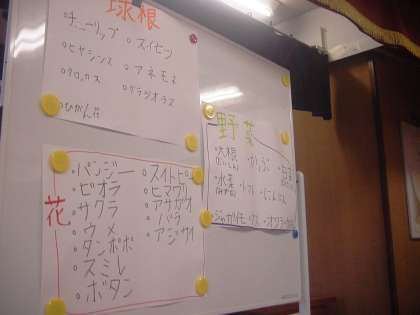 球根
チューリップ ◦スイセン
◦ヒヤシンス ◦アネモネ
◦クロッカス ◦グラジオラス
◦ひがん花
花
◦パンジー ◦スイトピー
◦ビオラ ◦ヒマワリ
◦サクラ ◦アサガオ
◦ウメ ◦バラ
◦タンポポ ◦アジサイ
◦スミレ
◦ボタン
野菜
◦大根 ◦かぶ
◦水菜 ◦トマト ◦にんじん
◦ジャガイモ